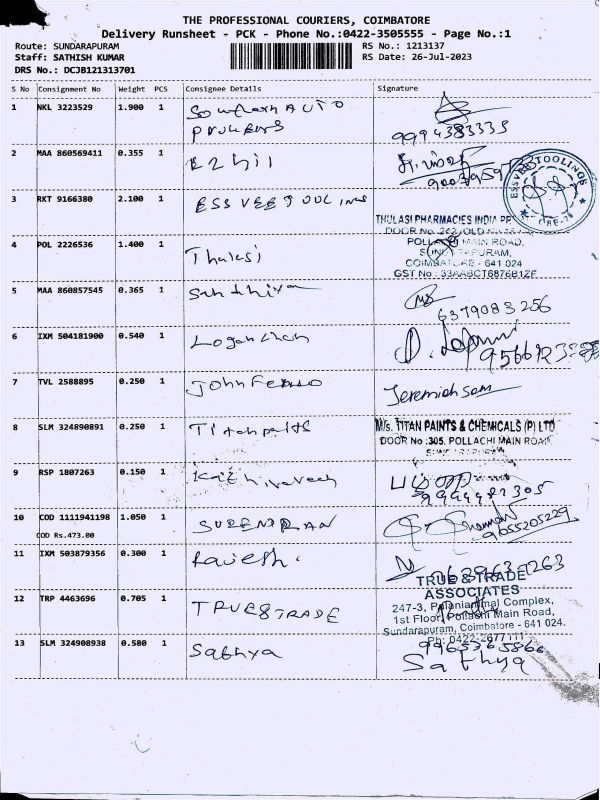 THE PROFESSIONAL COURIERS, COIMBATORE
Delivery Runsheet - PCK - Phone No.:0422-3505555 - Page No.:1
Route: SUNDARAPURAM RS No.: 1213137
Staff: SATHISH KUMAR RS Date: 26-Jul-2023
DRS No.: DCJB121313701
S No Consignment No Weight PCS Consignee Details Signature
1 NKL 3223529 1.900 1 Southern AUTO
9994383335
2 MAA 860569411 0.355 1 Ezhil
ESSVEE TOOLINGS
CBE-24
3 RKT 9166380 2.100 1 ESSVEE TOOLINGS
THULASI PHARMACIES INDIA PR
4 POL 2226536 1.400 1 Thulasi
POLLACHI MAIN ROAD,
COIMBATORE - 641 024
GST No : 33AABCT6876B1ZF
5 MAA 860857545 0.365 1 Sandhiya
6379083256
6 IXM 504181900 0.540 1 Loganathan
7 TVL 2588895 0.250 1 John Ferdo
Jeremiah Sam
8 SLM 324890891 0.250 1 Titan paints
M/s. TITAN PAINTS & CHEMICALS (P) LTD
DOOR No :305, POLLACHI MAIN ROAD
9 RSP 1807263 0.150 1
9994427305
10 COD 1111941198 1.050 1 SURENDRAN
COD Rs.473.00
9655205229
11 IXM 503879356 0.300 1 Rajesh.
12 TRP 4463696 0.705 1 TRUE & TRADE
TRUE & TRADE
ASSOCIATES
247-3, Palaniammal Complex,
1st Floor, Pollachi Main Road,
Sundarapuram, Coimbatore - 641 024.
Ph: 0422-2677111
13 SLM 324908938 0.580 1 Sathya
9965365866
Sathya